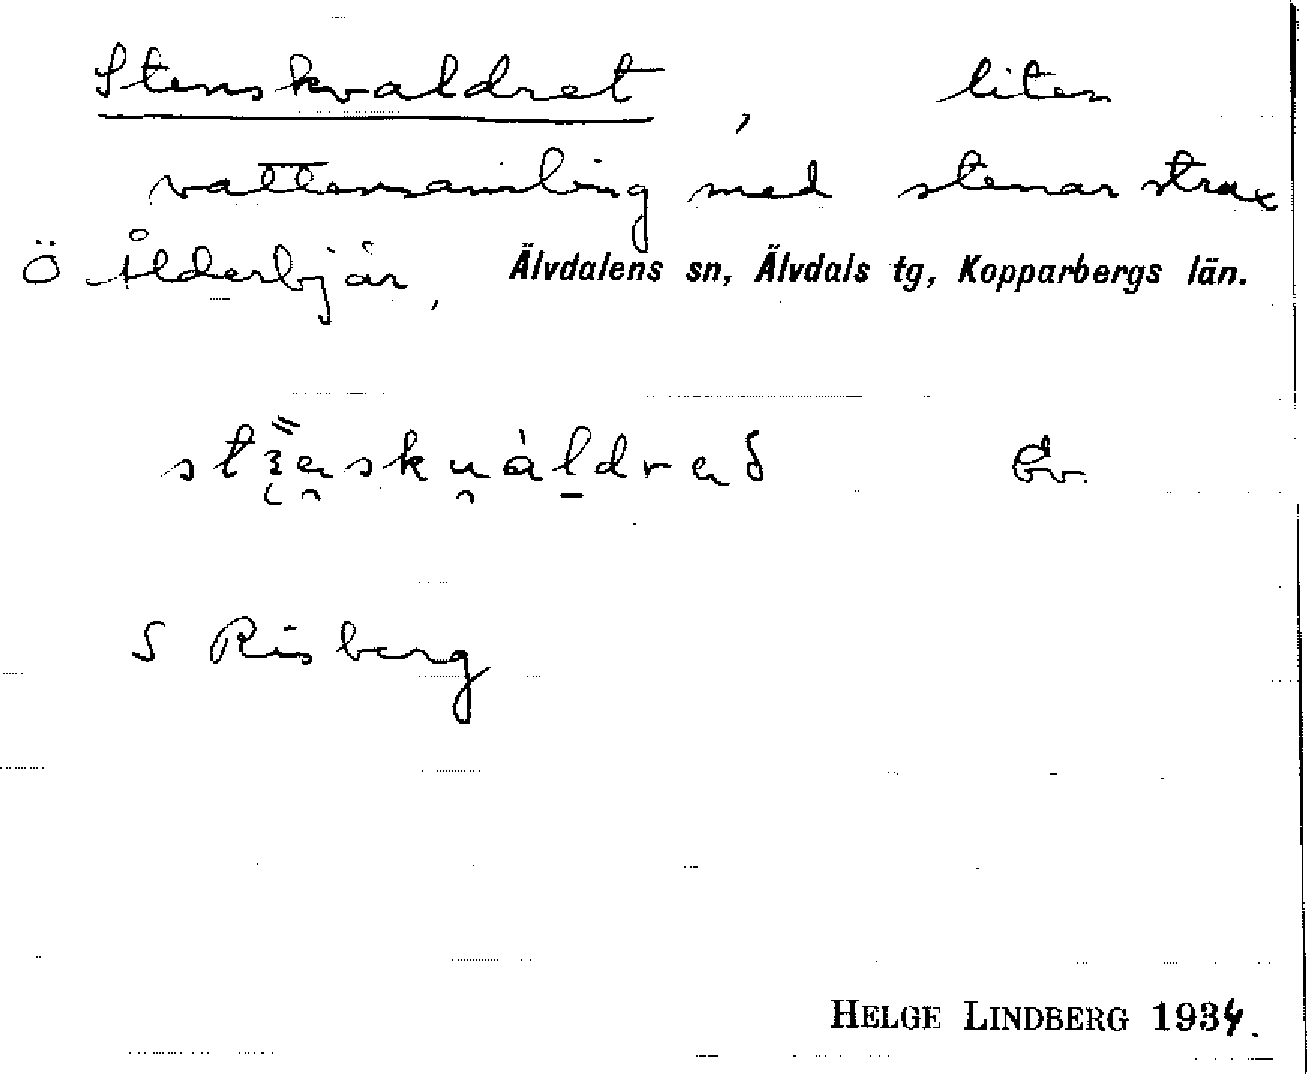 Stenskvaldret, liten
vattensamling med stenar strax
Ö Ålderbjär, Älvdalens sn, Älvdals tg, Kopparbergs län.
S Risberg
HELGE LINDBERG 1934.